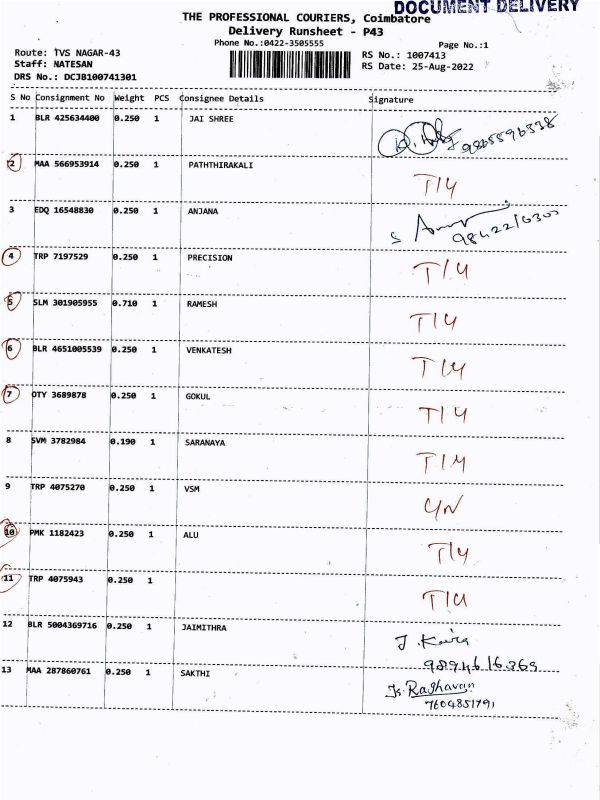 DOCUMENT DELIVERY
THE PROFESSIONAL COURIERS, Coimbatore
Delivery Runsheet - P43
Phone No.:0422-3505555
Page No.:1
Route: TVS NAGAR-43
RS No.: 1007413
Staff: NATESAN
RS Date: 25-Aug-2022
DRS No.: DCJB100741301
S No Consignment No Weight PCS Consignee Details Signature
1 BLR 425634400 0.250 1 JAI SHREE
2 MAA 566953914 0.250 1 PATHTHIRAKALI
T/4
3 EDQ 16548830 0.250 1 ANJANA
S
4 TRP 7197529 0.250 1 PRECISION
T/4
5 SLM 301905955 0.710 1 RAMESH
T/4
6 BLR 4651005539 0.250 1 VENKATESH
T/4
7 OTY 3689878 0.250 1 GOKUL
T/4
8 SVM 3782984 0.190 1 SARANAYA
T/4
9 TRP 4075270 0.250 1 VSM
10 PMK 1182423 0.250 1 ALU
T/4
11 TRP 4075943 0.250 1
T/4
12 BLR 5004369716 0.250 1 JAIMITHRA
J.
13 MAA 287860761 0.250 1 SAKTHI
Raghavan
7604851791